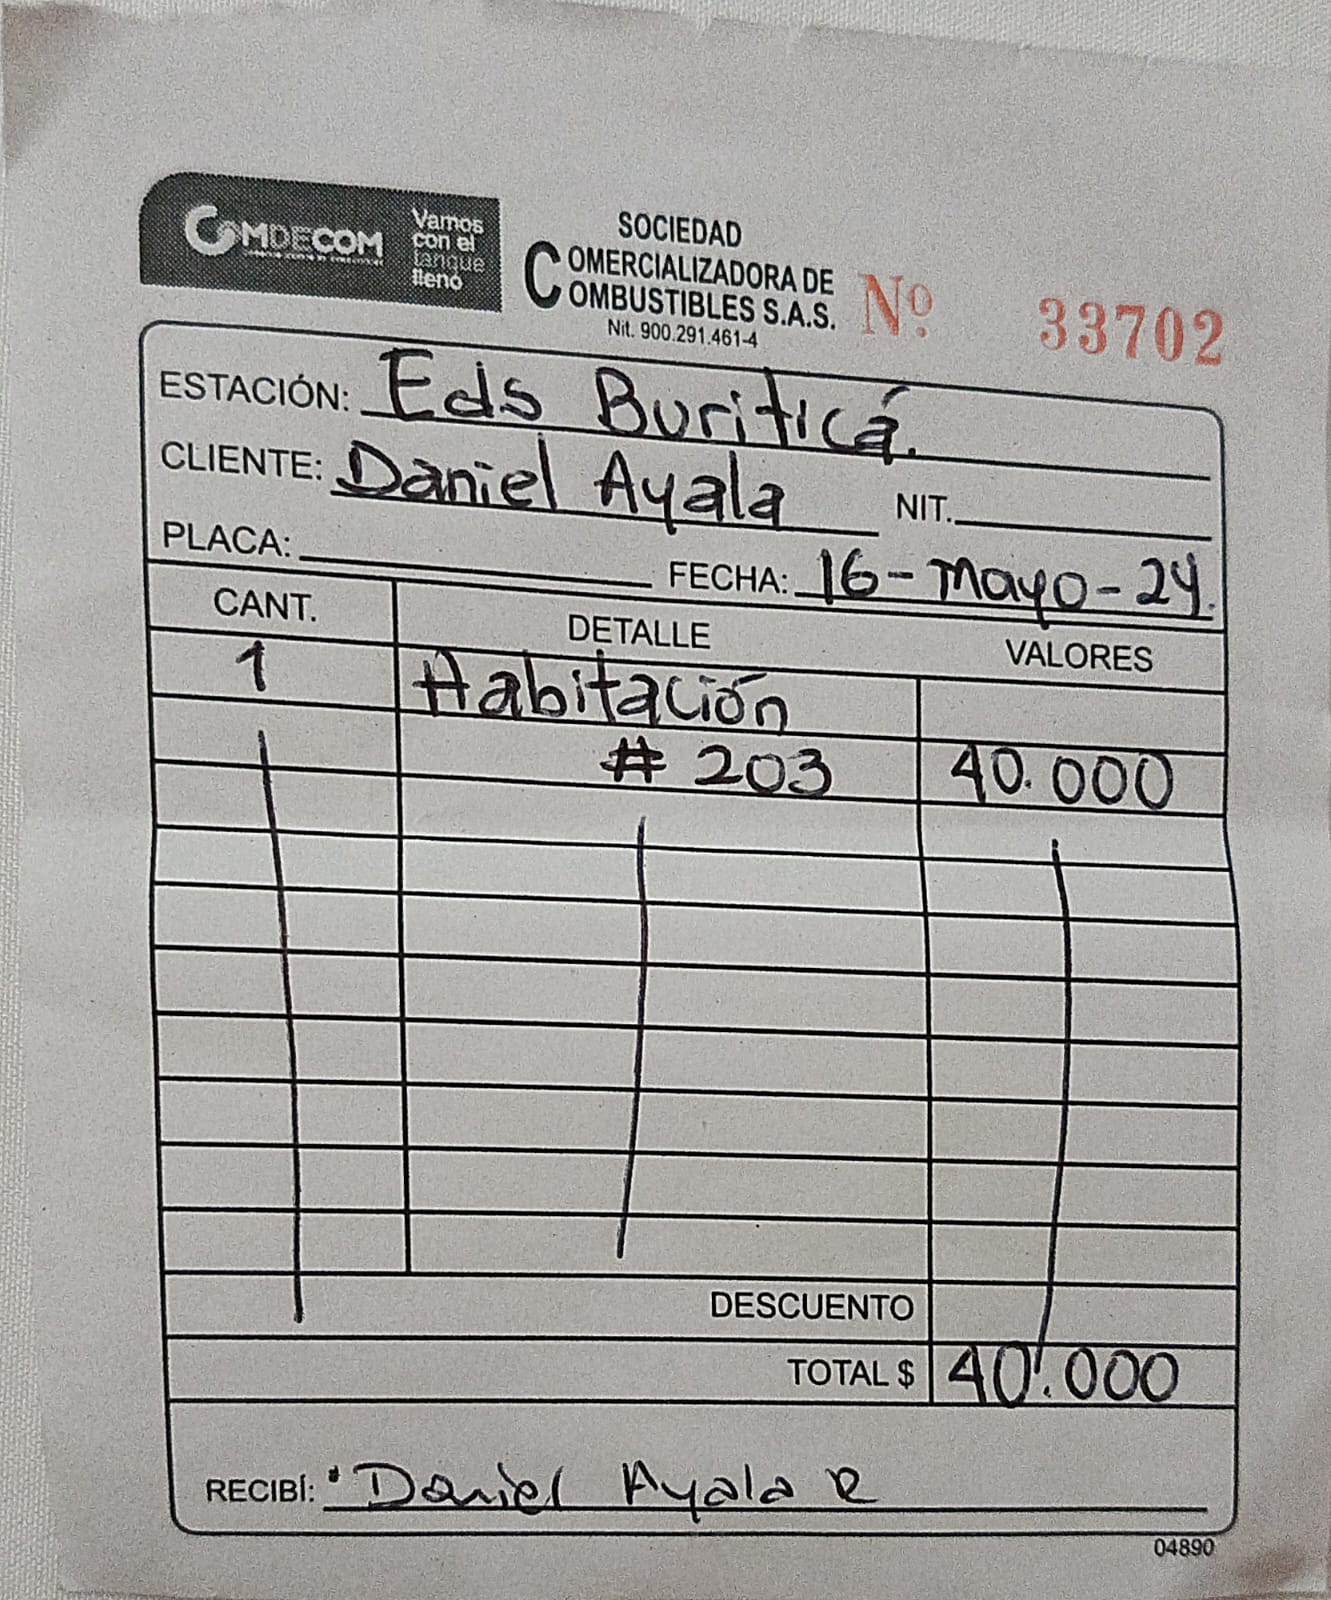 COMDECOM
Vamos
con el
tanque
lleno
SOCIEDAD
COMERCIALIZADORA DE
COMBUSTIBLES S.A.S.
Nit. 900.291.461-4
Nº 33702
ESTACIÓN: Eds Buriticá.
CLIENTE: Daniel Ayala NIT.
PLACA: FECHA: 16-Mayo-24.
CANT. DETALLE VALORES
1 Habitación
# 203 40.000
DESCUENTO
TOTAL $ 40.000
RECIBÍ: Daniel Ayala R
04890